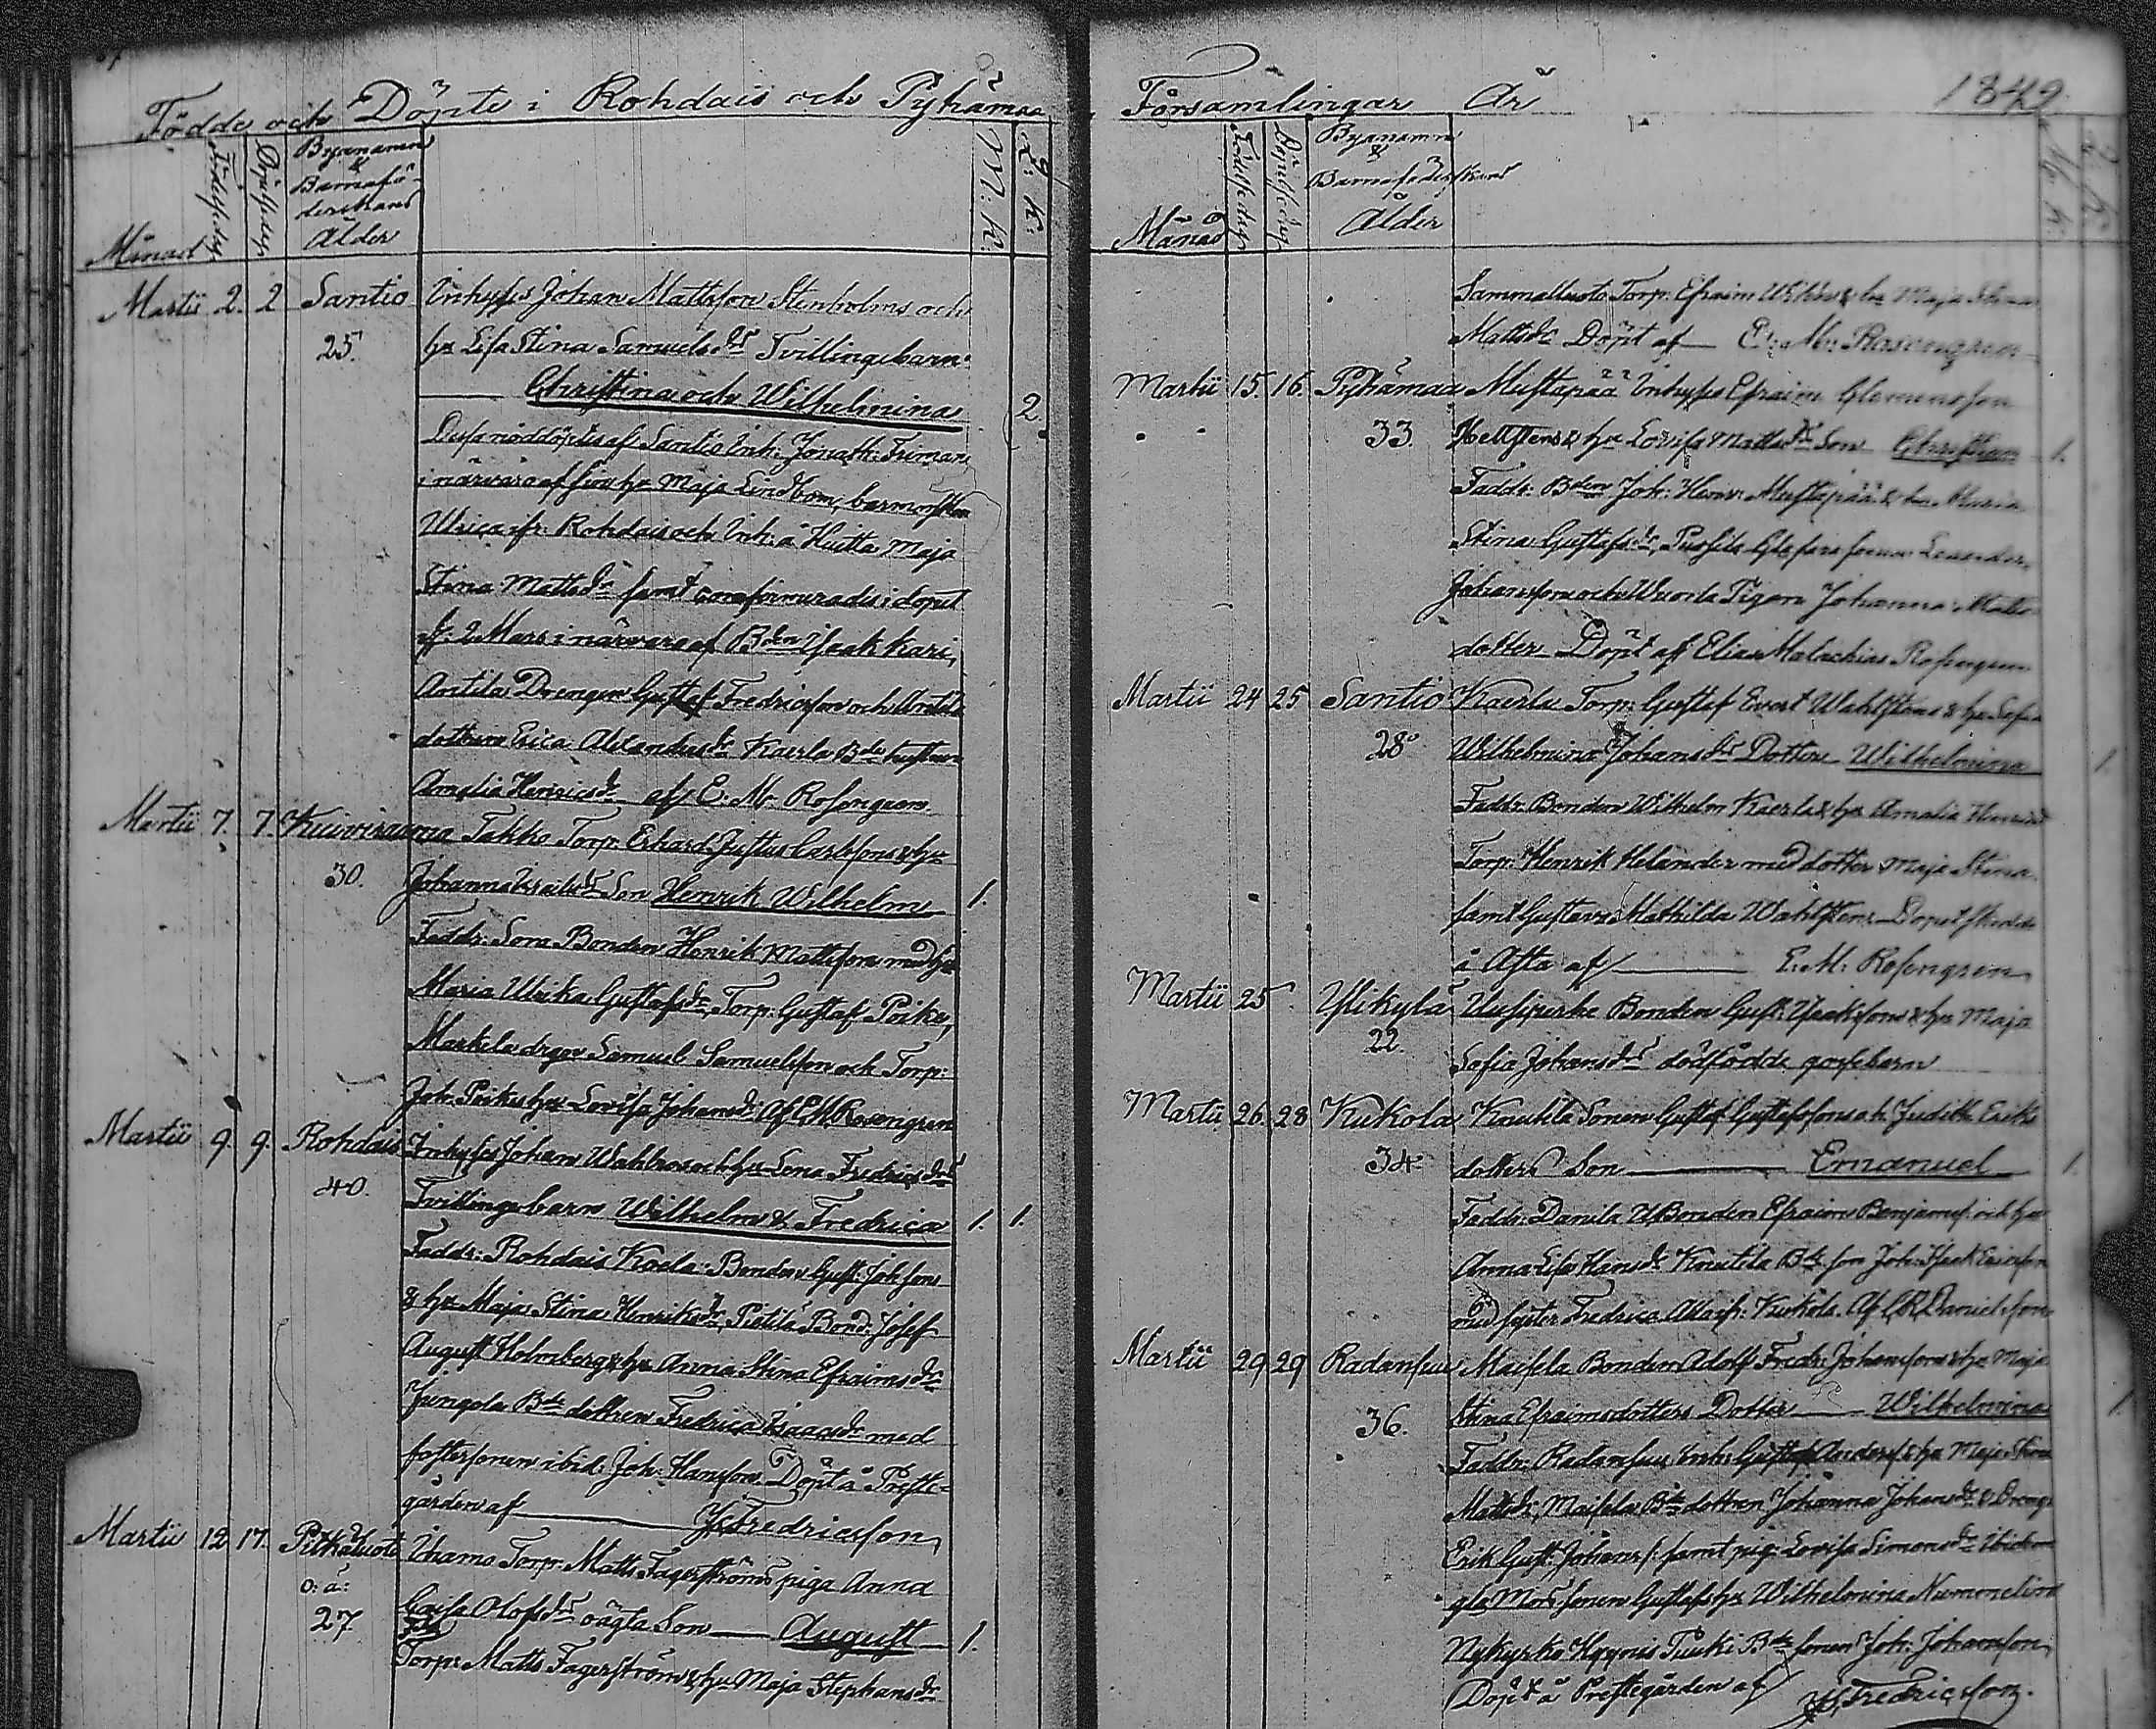 Födde och Döpte i Rohdais och Pyhämaa
Månad
Födelsedag
Döpelsedag
Byanamn
&
Barnafö-
derskans
Ålder
M: K.
Q: K.
Martii 2. 2 Santio Inhyses Johan Mattsson Stenholms och
25. hu Lisa Stina Samuelsdrs Tvillingebarn
Christina och Wilhelmina 2.
Dessa nöddöptes af Santio Inh: Jonath: Friman
i närvaro af sin hu Maja Lindbom, barnmorskan
Ulrica ifr: Rohdais och Inh: å Huitta Maja
Stina Mattsdr samt confirmerades i dopet
d: 2 Mars i närvaro af Bden Isaak Kari,
Antila Drengen Gustaf Fredricsson och Antila
dottren Erica Alexandersdr Kaerla Bde hustrun
Amalia Henricsdr af E: M: Rosengren
Martii 7. 7. Kuivirauma Takko Torp: Erhard Justus Carlssons & hu
30. Johanna Isaksdr Son Henrik Wilhelm 1.
Faddr: Sora Bonden Henrik Mattsson med hu
Maria Ulrika Gustafsdr, Torp: Gustaf Poike,
Markela drgen Samuel Samuelsson och Torp:
Joh: Poikes hu Lovisa Johansdr. Af E M Rosengren
Martii 9. 9. Rohdais Inhyses Johan Wahlroos och hu Lena Fredricsdrs
40. Tvillingebarn Wilhelm & Fredrica 1. 1.
Faddr: Rohdais Kaela Bonden Gust: Johsson
& hu Maja Stina Henriksdr, Pietilä Bond: Josef
August Holmberg & hu Anna Stina Efraimsdr
Jungola Bde dottren Fredrica Isaacsdr med
fostersonen ibid: Joh: Hansson. Döpt å Preste-
gården af Is Fredricsson
Martii 12 17. Pitkäluoto Ihamo Torp: Matts Fagerströms piga Anna
o: ä:
27. Caisa Olofsdrs oägta Son August 1.
Torp: Matts Fagerström & hu Maja Stephansdr
Församlingar År 1849.
Månad
Födelsedag
Döpelsedag
Byanamn
&
Barnaföderskans
Ålder
M. K.
Q. K.
Sammallusto Torp: Efraim & hu Maja Stina
Mattsdr Döpt af E: M: Rosengren
Martii 15. 16. Pyhämaa Mustapää Inhyses Efraim Clemensson
33. Hellstens & hu Lovisa Mattsdr Son Christian 1.
Faddr: Bden Joh: Henr: Mustapää & hu Maria
Stina Gustafsdr, Leander
Johansson och Pigan Johanna Matts
dotter Döpt af Elias Malachias Rosengren
Martii 24 25 Santio Kaerla Torp: Gustaf Evert Wahlstens & hu Sofia
28 Wilhelmina Johansdrs Dotter Wilhelmina 1.
Faddr: Bonden Wilhelm Kaerla & hu Amalia Henricsdr
Torp: Henrik Helander med dotter Maja Stina
samt Gustava Mathilda Wahlsten. Dopet skedde
å af E: M: Rosengren
Martii 25 Ylikylä Uusiperke Bonden Gust: Isaksson & hu Maja
22. Sofia Johansdrs dödfödde gossebarn
Martii 26. 28 Kukola Knutila Sonen Gustaf Gustafssons o h: Judith Eriks
34. dotters Son Emanuel 1.
Faddr: Danila Bonden Efraim Benjamss: och hu
Anna Lisa Hansdr Knutila Bde son Joh: Isak Ericsson
med syster Fredrica Kukola. Af Danielsson
Martii 29 29 Radansuu Maisela Bonden Adolf Fredr: Johanssons & hu Maja
36. Stina Efraimsdotters Dotter Wilhelmina 1.
Faddr: Radansuu Inh: Gustaf Anderss: & hu Maja Stina
Mattsdr, Maisela Bde dottren Johanna Johansdr & Dreng:
Erik Gust: Johanss: samt pig: Lovisa Simonsdr ibidem
sonen Gustafs hu Wilhelmina Nummelin
Nykyrko Bde sonen Joh: Johansson
Döpt å Prestegården af Is Fredricsson.